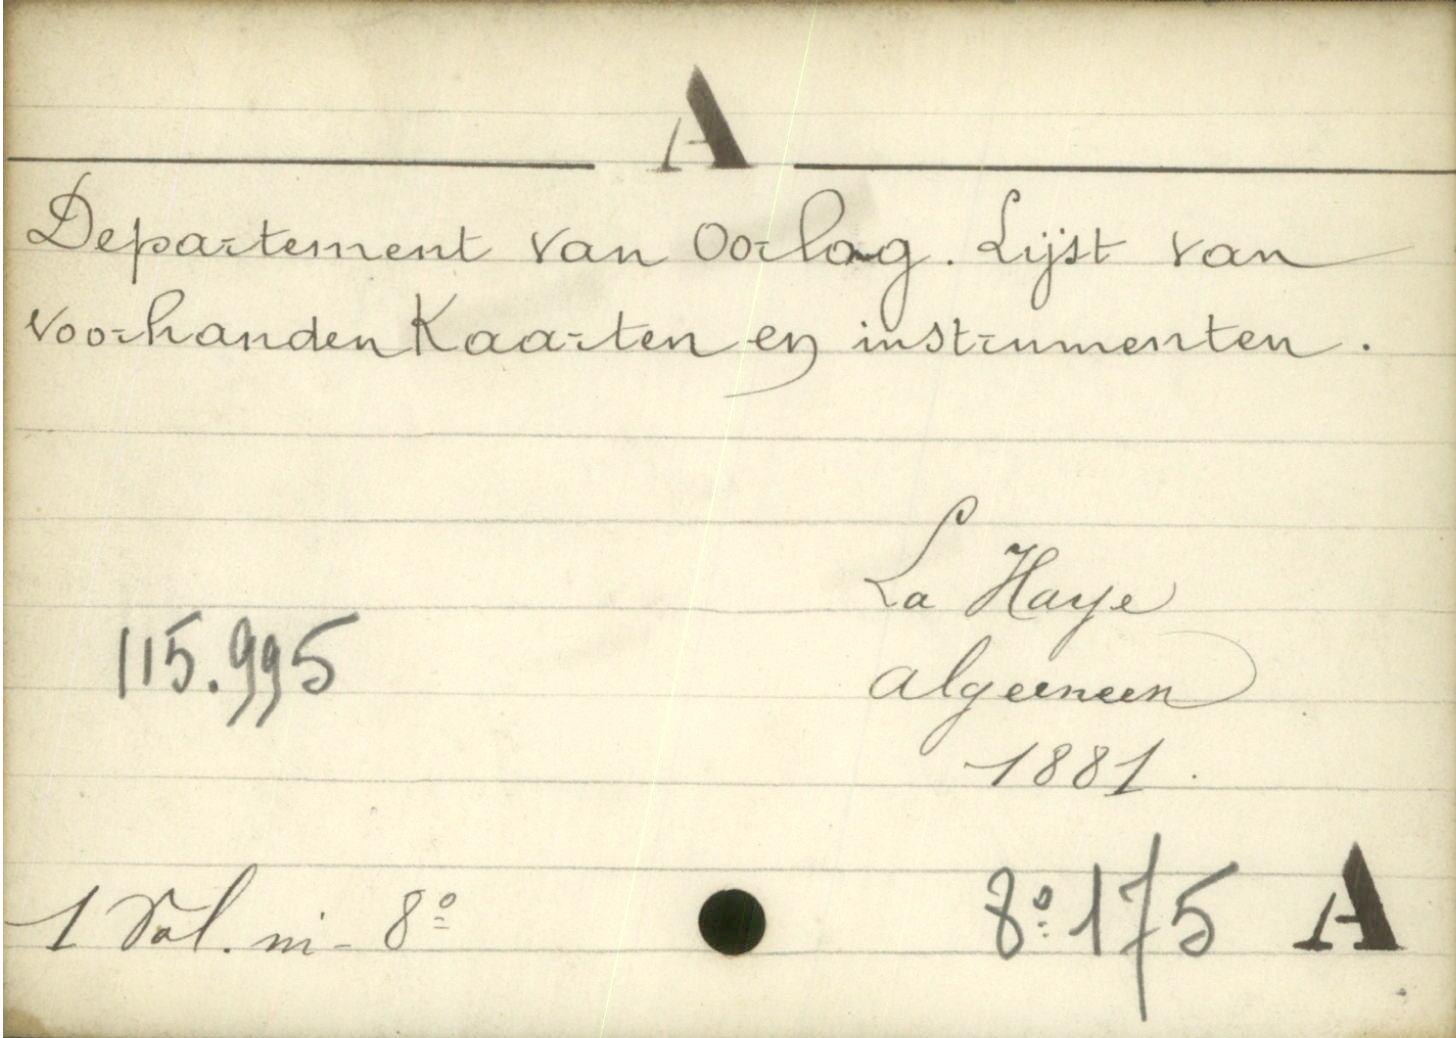 A
Departement van Oorlog. Lijst van
voorhanden Kaarten en instrumenten.
La Haye
algemeen
1881.
115.995
1 Vol. in-8º
8º 175 A